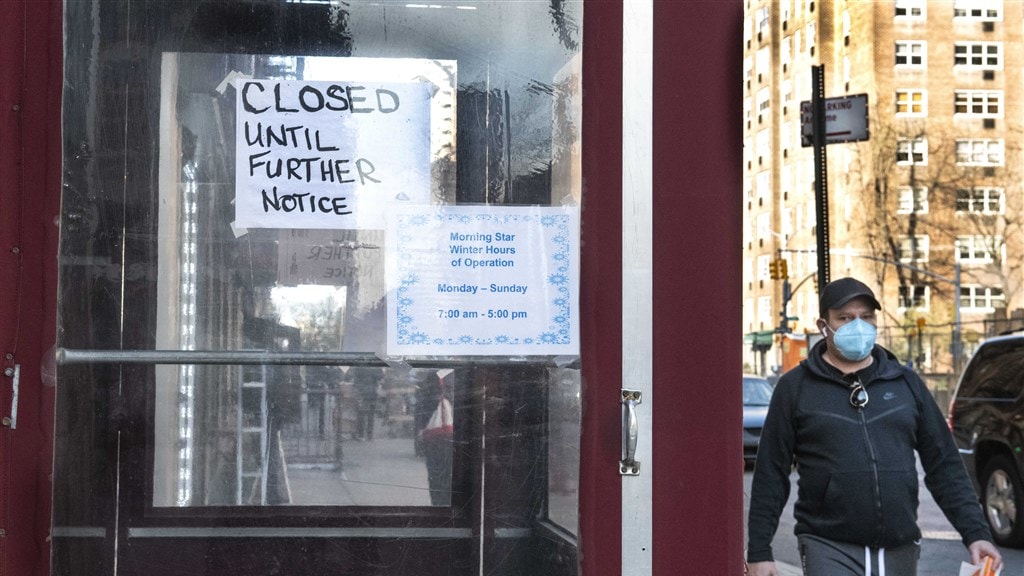 CLOSED
UNTIL
FURTHER
NOTICE
Morning Star
Winter Hours
of Operation
Monday – Sunday
7:00 am - 5:00 pm